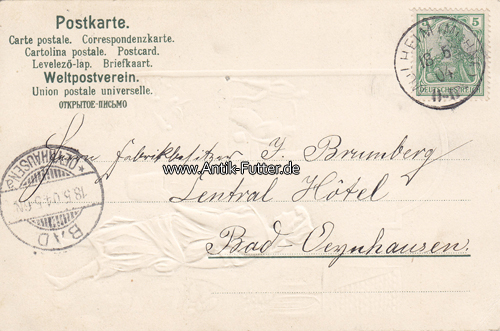 Postkarte.
Carte postale. Correspondenzkarte.
Cartolina postale. Postcard.
Levelező-lap. Briefkaart.
Weltpostverein.
Union postale universelle.
ОТКРЫТОЕ-ПИСЬМО
5
DEUTSCHES REICH
MÜLHEIM
18 5
04
Herrn Fabrikbesitzer J. Brumberg
www.Antik-Futter.de
Central Hôtel
Bad-Oeynhausen.
OEYNHAUSEN
18.5.04.5-6N
BAD